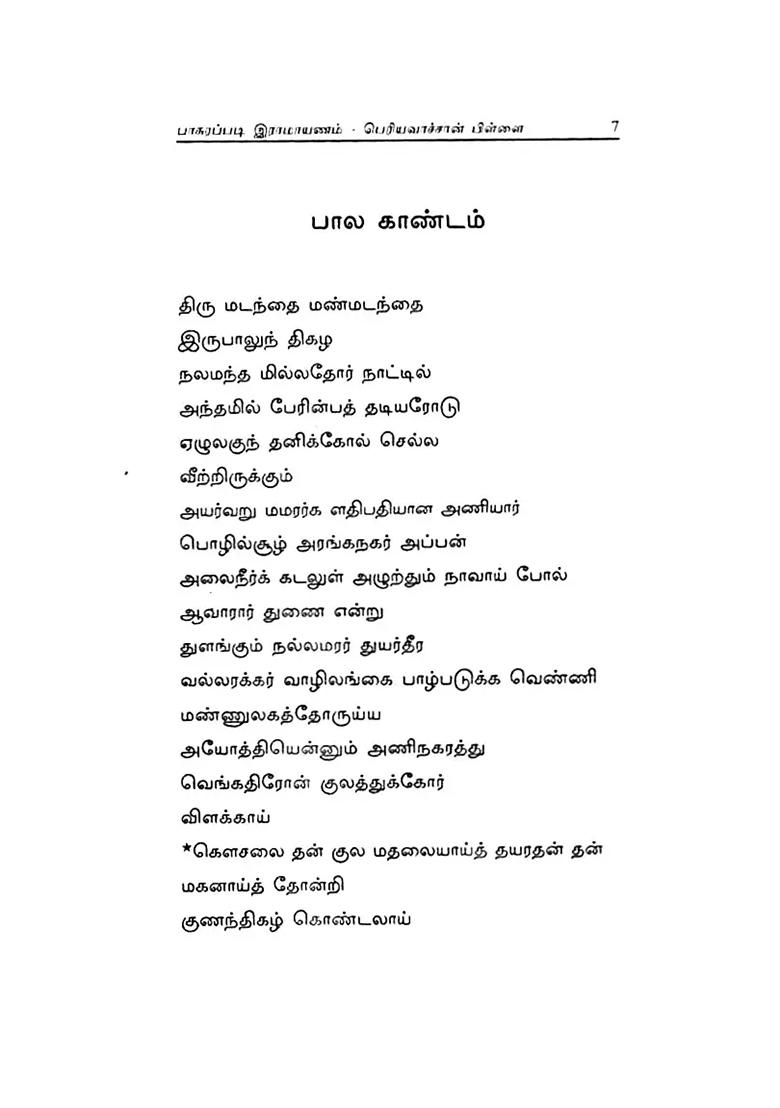 பாசுரப்படி இராமாயணம் · பெரியவாச்சான் பிள்ளை 7
பால காண்டம்
திரு மடந்தை மண்மடந்தை
இருபாலுந் திகழ
நலமந்த மில்லதோர் நாட்டில்
அந்தமில் பேரின்பத் தடியரோடு
ஏழுலகுந் தனிக்கோல் செல்ல
வீற்றிருக்கும்
அயர்வறு மமரர்க ளதிபதியான அணியார்
பொழில்சூழ் அரங்கநகர் அப்பன்
அலைநீர்க் கடலுள் அழுற்தும் நாவாய் போல்
ஆவாரார் துணை என்று
துளங்கும் நல்லமரர் துயர்தீர
வல்லரக்கர் வாழிலங்கை பாழ்படுக்க வெண்ணி
மண்ணுலகத்தோருய்ய
அயோத்தியென்னும் அணிநகரத்து
வெங்கதிரோன் குலத்துக்கோர்
விளக்காய்
*கௌசலை தன் குல மதலையாய்த் தயரதன் தன்
மகனாய்த் தோன்றி
குணந்திகழ் கொண்டலாய்